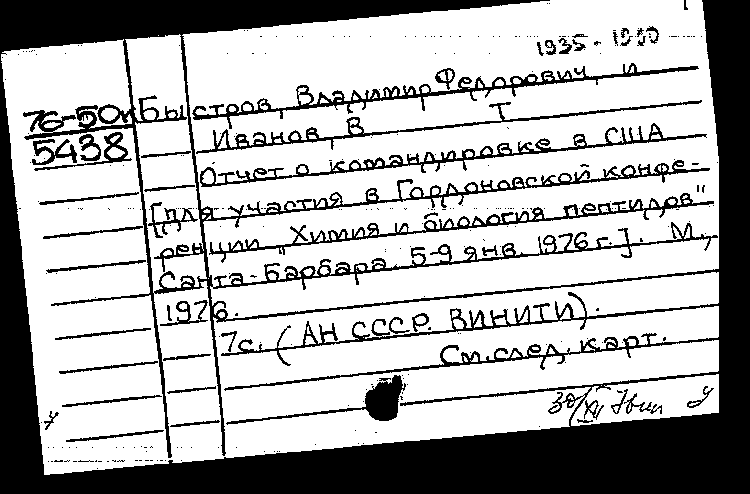 1935 - 1990
76-50к Быстров, Владимир Федорович, и
5438 Иванов, В Т
Отчет о командировке в США
[для участия в Гордоновской конфе-
ренции "Химия и биология пептидов"
Санта-Барбара. 5-9 янв. 1976 г.]. М.,
1976.
7с. (АН СССР. ВИНИТИ).
См. след. карт.
30/XII